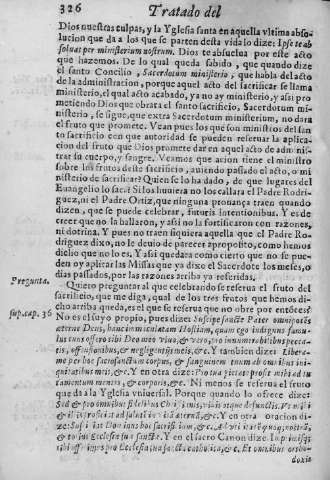 326 Tratado del
Dios nuestras culpas, y la Yglesia santa en aquella vltima abso-
lucion que da a los que se parten desta vida lo dize: Ipse te ab
soluat per ministerium nostrum. Dios te absuelua por este acto
que hazemos. De lo qual queda sabido, que quando dize
el santo Concilio, Sacerdotum ministerio, que habla del acto
de la administracion, porque aquel acto del sacrificar se llama
ministerio, el qual acto acabado, ya no ay ministerio, y assi pro
metiendo Dios que obrara el santo sacrificio, Sacerdotum mi-
nisterio, se sigue, que extra Sacerdotum ministerium, no dara
el fruto que promete. Vean pues los que son ministros del san
to sacrificio con que autoridad se pueden reseruar la aplica-
cion del fruto que Dios promete dar en aquel acto de admi-
trar su cuerpo, y sangre. Veamos que acion tiene el ministro
sobre los frutos deste sacrificio, auiendo passado el acto, o mi
nisterio de sacrificar? Quien se lo ha dado, de que lugares del
Euangelio lo saca? Si los huuiera no los callara el Padre Rodri-
guez, ni el Padre Ortiz, que ninguna pronança traen quando
dizen, que se puede celebrar, futuris intentionibus. Y es de
creer que no la hallaron, y assi no la fortificaron con razones,
ni dotrina. Y pues no traen siquiera aquella que el Padre Ro-
driguez dixo, no le deuio de parecer aproposito, como hemos
dicho que no lo es. Y assi quedara como cierto que no se pue
den oy aplicar las Missas que ya dixo el Sacerdote los meses, o
dias passados, por las razones arriba ya referidas.
Pregunta. Quiero preguntar al que celebrando se reserua el fruto del
sacrificio, que me diga, qual de los tres frutos que hemos di-
cho arriba queda, es el que se reserua que no obre por entôces?
sup. cap. 36 No es el suyo propio, pues dizen: Suscipe sancte Pater omnipotēs
æterne Deus, hanc immaculatam Hostiam, quam ego indignus famu-
lus tuus offero tibi Deo meo viuo, & vero, pro innumerabilibus pecca-
tis, offensionibus, & negligentijs meis, &c. Y tambien dize: Libera
me per hoc sacrosanctum corpus, & sanguinem tuum ab omnibus ini-
quitatibus meis, &c. Y en otra dize: Pro tua pietate prosit mihi ad tu
tamentum mentis, & corporis, &c. Ni menos se reserua el fruto
que da a la Yglesia vniuersal. Porque quando lo ofrece dize:
Sed & pro omnibus fidelibus Christianis, viuis atque defunctis. Vt mihi
& illis proficiat ad salutem in vitā æternā, &c. Y en otra oracion di-
ze: Suscipiat Dominus hoc sacrificium, &c. Ad vtilitatē quoq; nostrā,
& totius Ecclesiæ suæ sanctæ. Y en el sacro Canon dize: In primis quæ
tibi offerimus pro Ecclesia tua sancta catholica, &c. Et omnibus ortho-
doxis